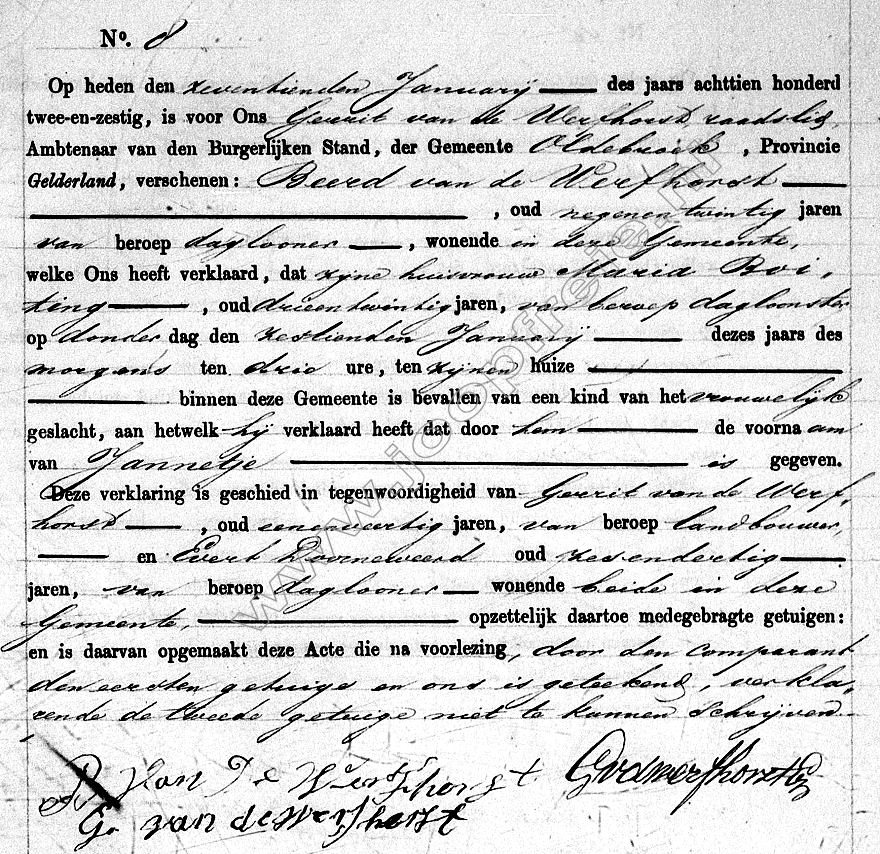 No. 8
Op heden den zeventienden Januarij des jaars achttien honderd
twee-en-zestig, is voor Ons Gerrit van de Werfhorst raadslid
Ambtenaar van den Burgerlijken Stand, der Gemeente Oldebroek, Provincie
Gelderland, verschenen: Beerd van de Werfhorst
, oud negenentwintig jaren
van beroep daglooner, wonende in deze Gemeente,
welke Ons heeft verklaard, dat zijne huisvrouw Maria Boi-
ting, oud drieentwintig jaren, van beroep dagloonster
op donderdag den zestienden Januarij dezes jaars des
morgens ten drie ure, ten zijnen huize
binnen deze Gemeente is bevallen van een kind van het vrouwelijk
geslacht, aan hetwelk hij verklaard heeft dat door hem de voornaam
van Jannetje is gegeven.
Deze verklaring is geschied in tegenwoordigheid van Gerrit van de Werf-
horst, oud eenenveertig jaren, van beroep landbouwer,
en Evert Doorneweerd oud zesendertig
jaren, van beroep daglooner wonende beide in deze
Gemeente, opzettelijk daartoe medegebragte getuigen:
en is daarvan opgemaakt deze Acte die na voorlezing, door den comparant
den eersten getuige en ons is geteekend, verkla-
rende de tweede getuige niet te kunnen schrijven.
B van De Werfhorst GvdWerfhorst
G. van de Werfhorst
www.joopfrele.nl